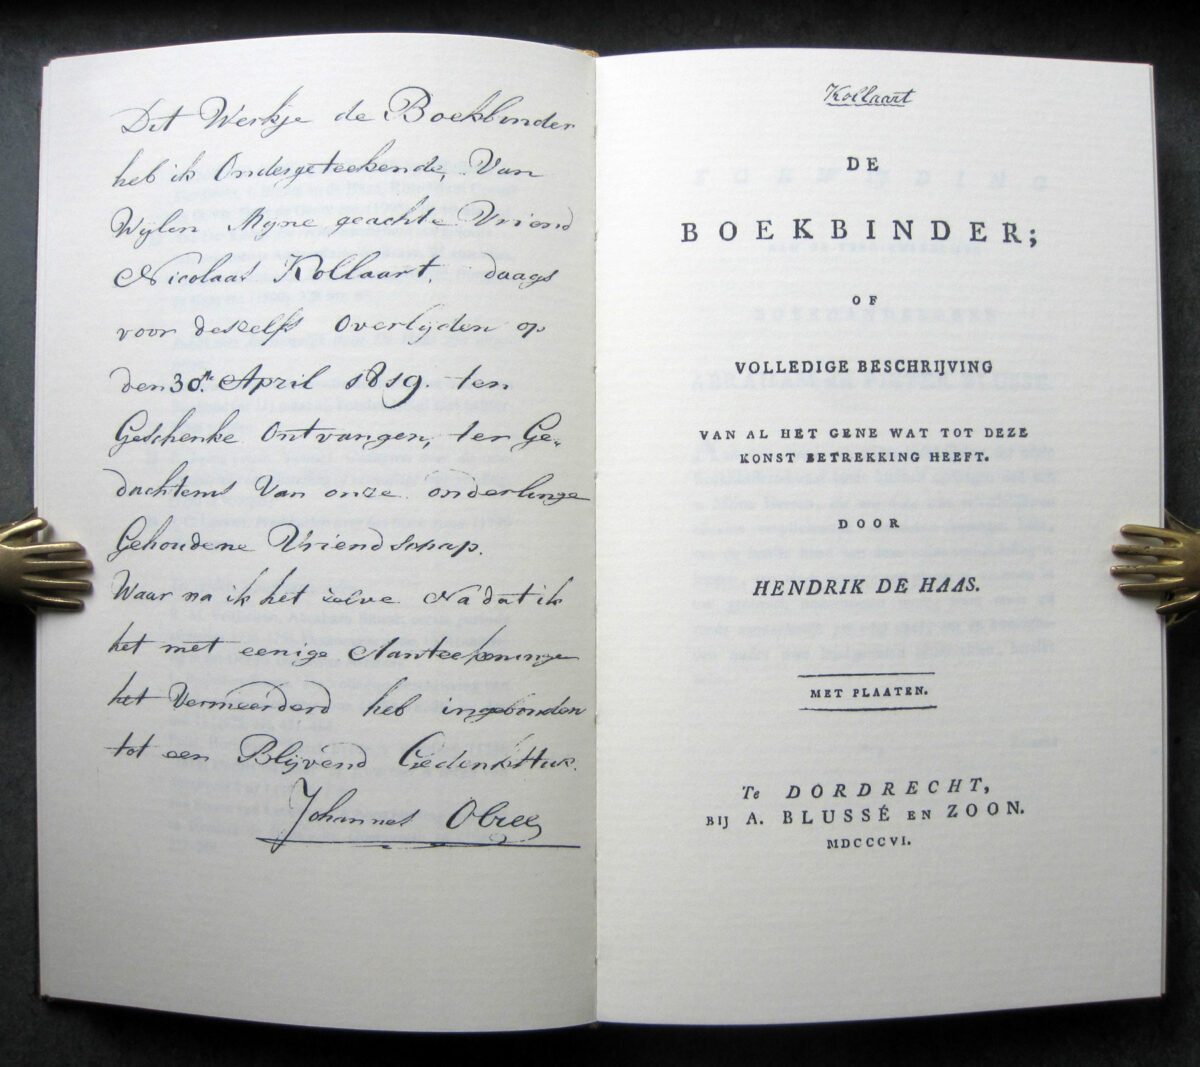 Dit Werkje de Boekbinder
heb ik Ondergeteekende, Van
Wijlen Myne geachte Vriend
Nicolaas Kollaart, daags
voor deszelfs Overlijden op
den 30.ste April 1819. ten
Geschenke Ontvangen, ter Ge-
dachtenis Van onze onderlinge
Gehoudene Vriendschap.
Waar na ik het zelve Na dat ik
het met eenige Aanteekeninge
het Vermeerderd heb ingebonden
tot een Blijvend Gedenkstuk.
Johannes
Kollaart
DE
BOEKBINDER;
OF
VOLLEDIGE BESCHRIJVING
VAN AL HET GENE WAT TOT DEZE
KONST BETREKKING HEEFT.
DOOR
HENDRIK DE HAAS.
MET PLAATEN.
Te DORDRECHT,
BIJ A. BLUSSÉ EN ZOON.
MDCCCVI.